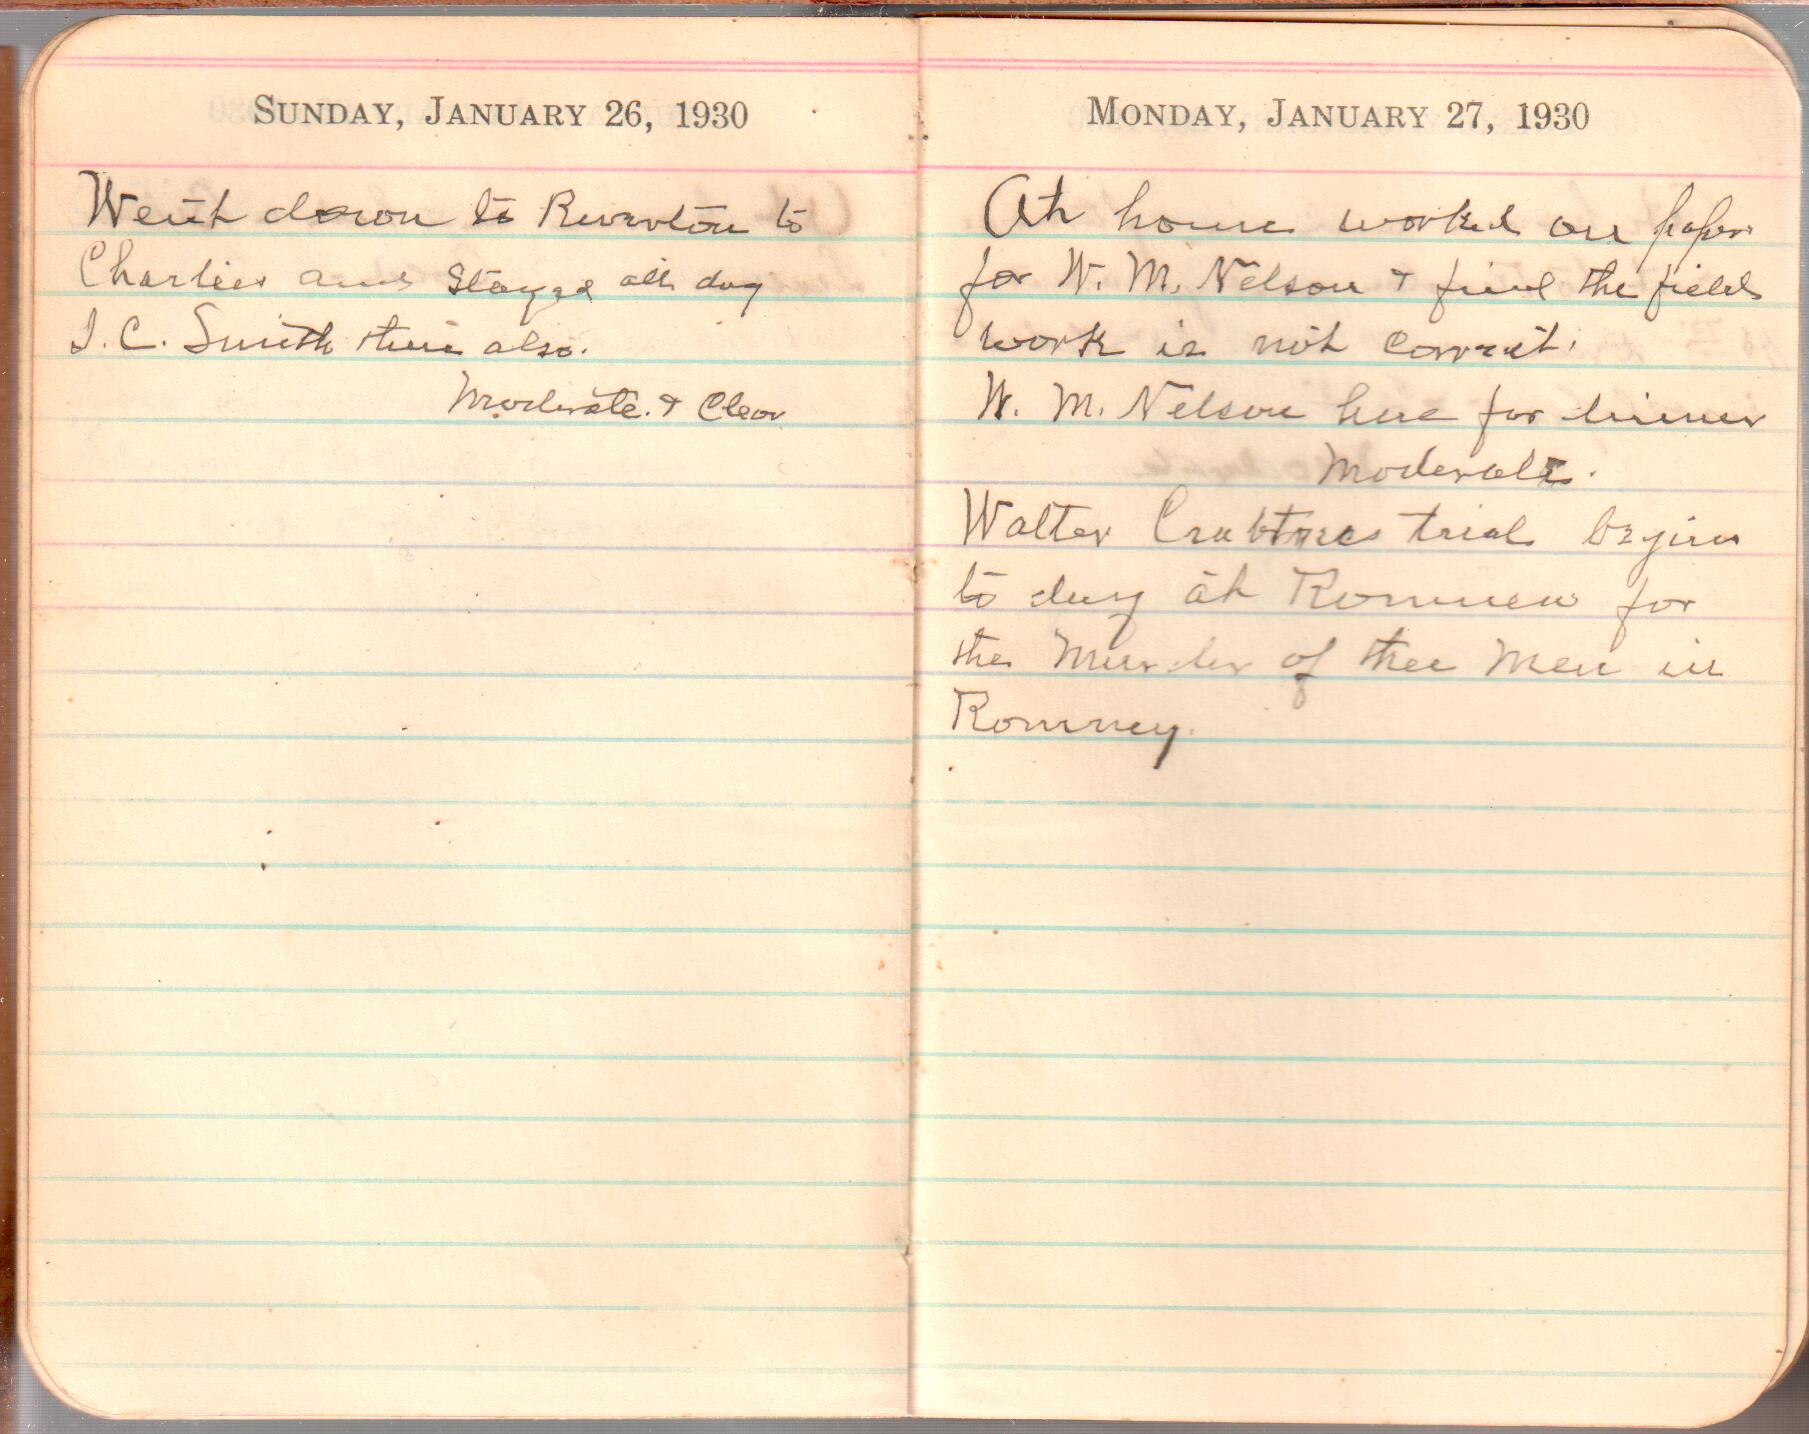 SUNDAY, JANUARY 26, 1930
Went down to Riverton to
Charlies and Stayed all day
I. C. Smith there also.
Moderate. & Clear
MONDAY, JANUARY 27, 1930
At home worked on paper
for W. M. Nelson & find the field
work is not correct.
W. M. Nelson here for dinner
Moderate.
Walter Crabtrees trial begins
to day at Romney for
the Murder of thee Men in
Romney.